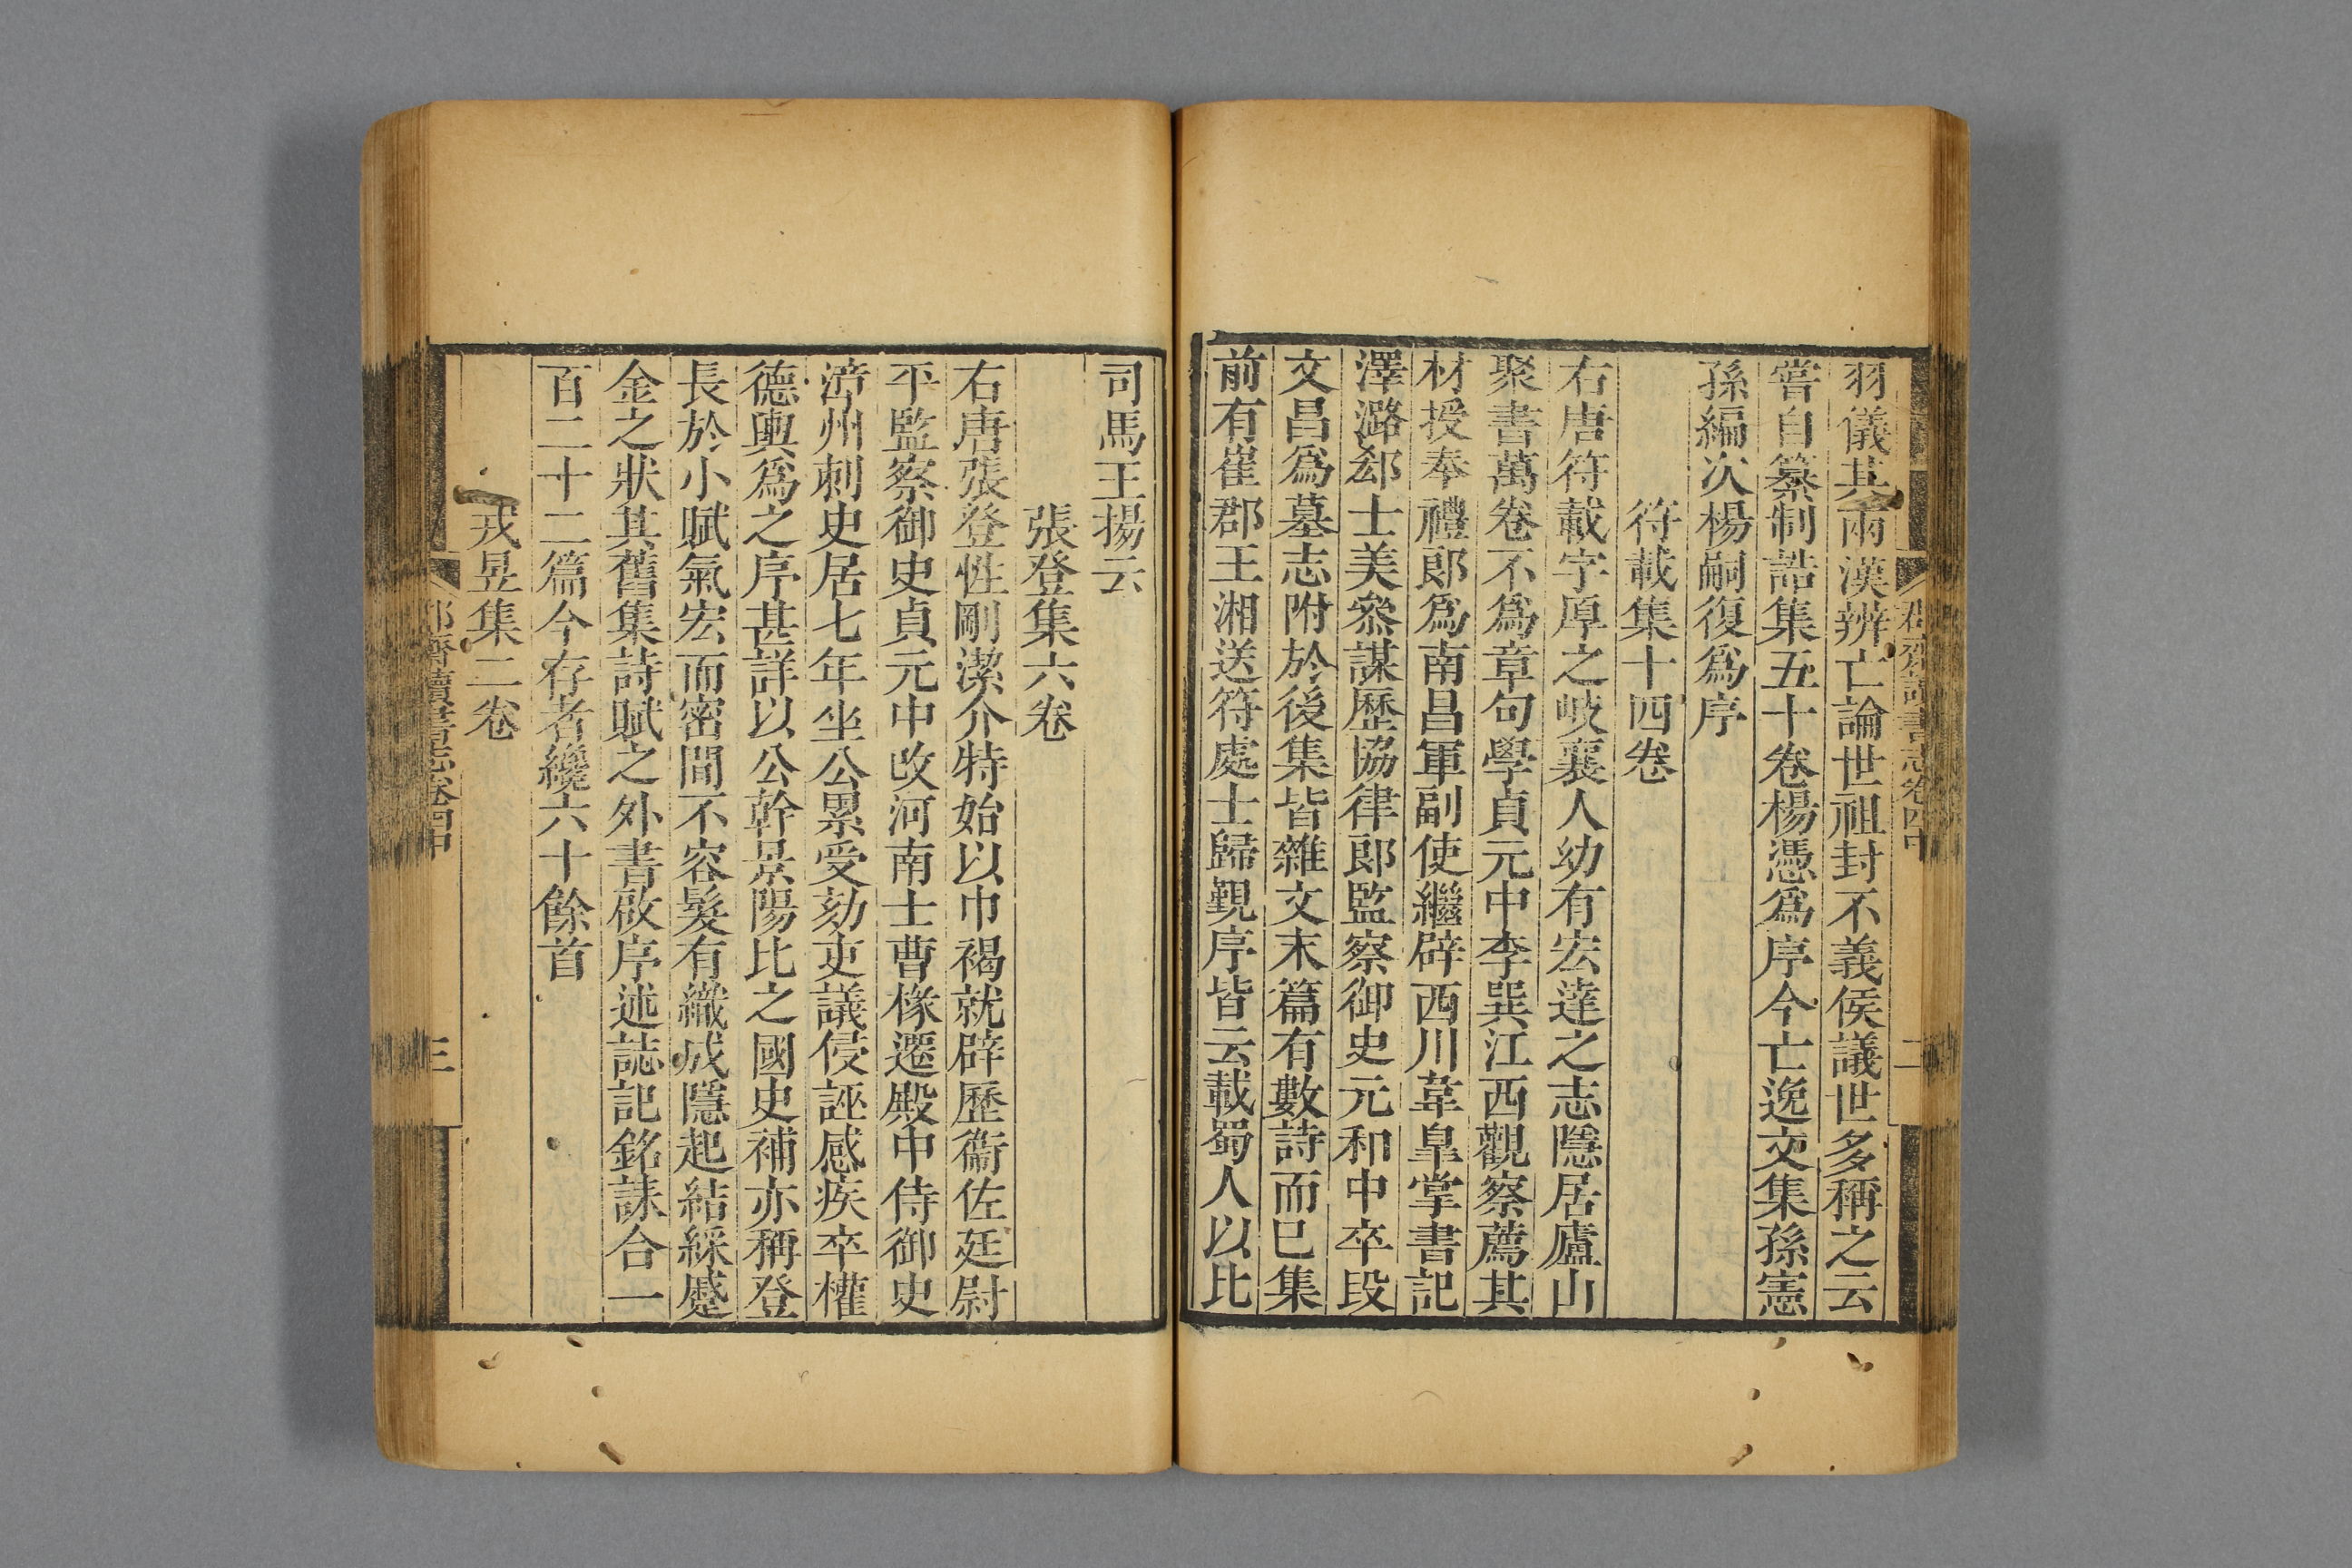 羽儀其兩漢辨亡論世祖封不義侯議世多稱之云
嘗自纂制誥集五十卷楊憑爲序今亡逸文集孫憲
孫編次楊嗣復爲序
符載集十四卷
右唐符載字厚之岐襄人幼有宏達之志隱居廬山
聚書萬卷不爲章句學貞元中李巽江西觀察薦其
材授奉禮郎爲南昌軍副使繼辟西川韋皐掌書記
澤潞郄士美參謀歷協律郎監察御史元和中卒段
文昌爲墓志附於後集皆雜文末篇有數詩而已集
前有崔郡王湘送符處士歸覲序皆云載蜀人以比
司馬王揚云
張登集六卷
右唐張登性剛潔介特始以巾褐就辟歷衞佐廷尉
平監察御史貞元中改河南士曹掾遷殿中侍御史
漳州刺史居七年坐公累受劾吏議侵誣感疾卒權
德輿爲之序甚詳以公幹景陽比之國史補亦稱登
長於小賦氣宏而密間不容髮有織成隱起結綵蹙
金之狀其舊集詩賦之外書啟序述誌記銘誄合一
百二十二篇今存者纔六十餘首
戎昱集二卷
郡齋讀書志卷四中
二
三